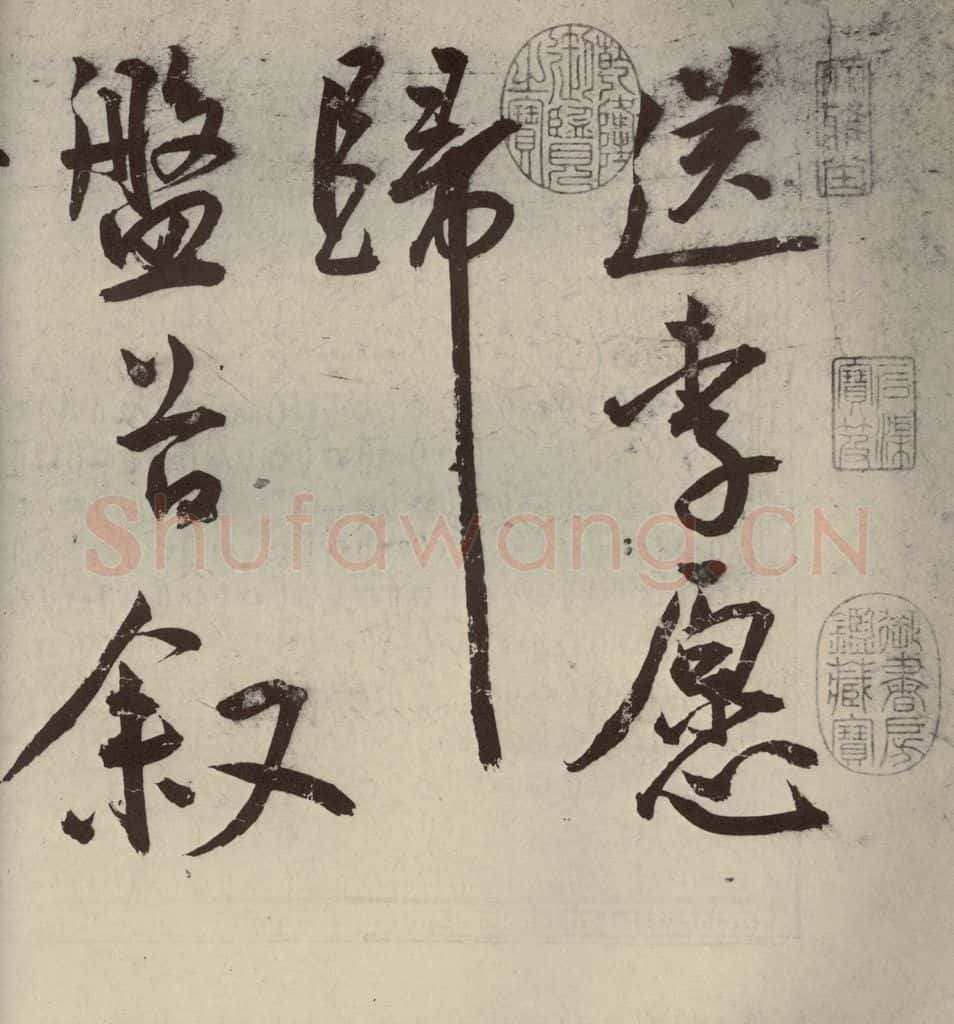 石渠寶笈
御書房鑑藏寶
送李愿
乾隆御覽之寶
歸
盤谷叙
Shufawang.CN